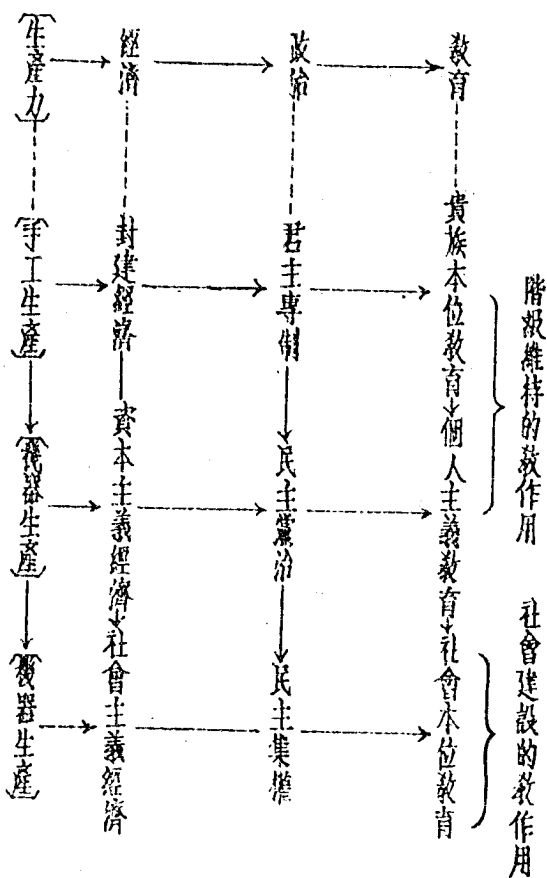 階級維持的教作用
社會建設的教作用
教育
貴族本位教育
個人主義教育
社會本位教育
政治
君主專制
民主黨治
民主集權
經濟
封建經濟
資本主義經濟
社會主義經濟
生產力
手工生產
機器生產
機器生產